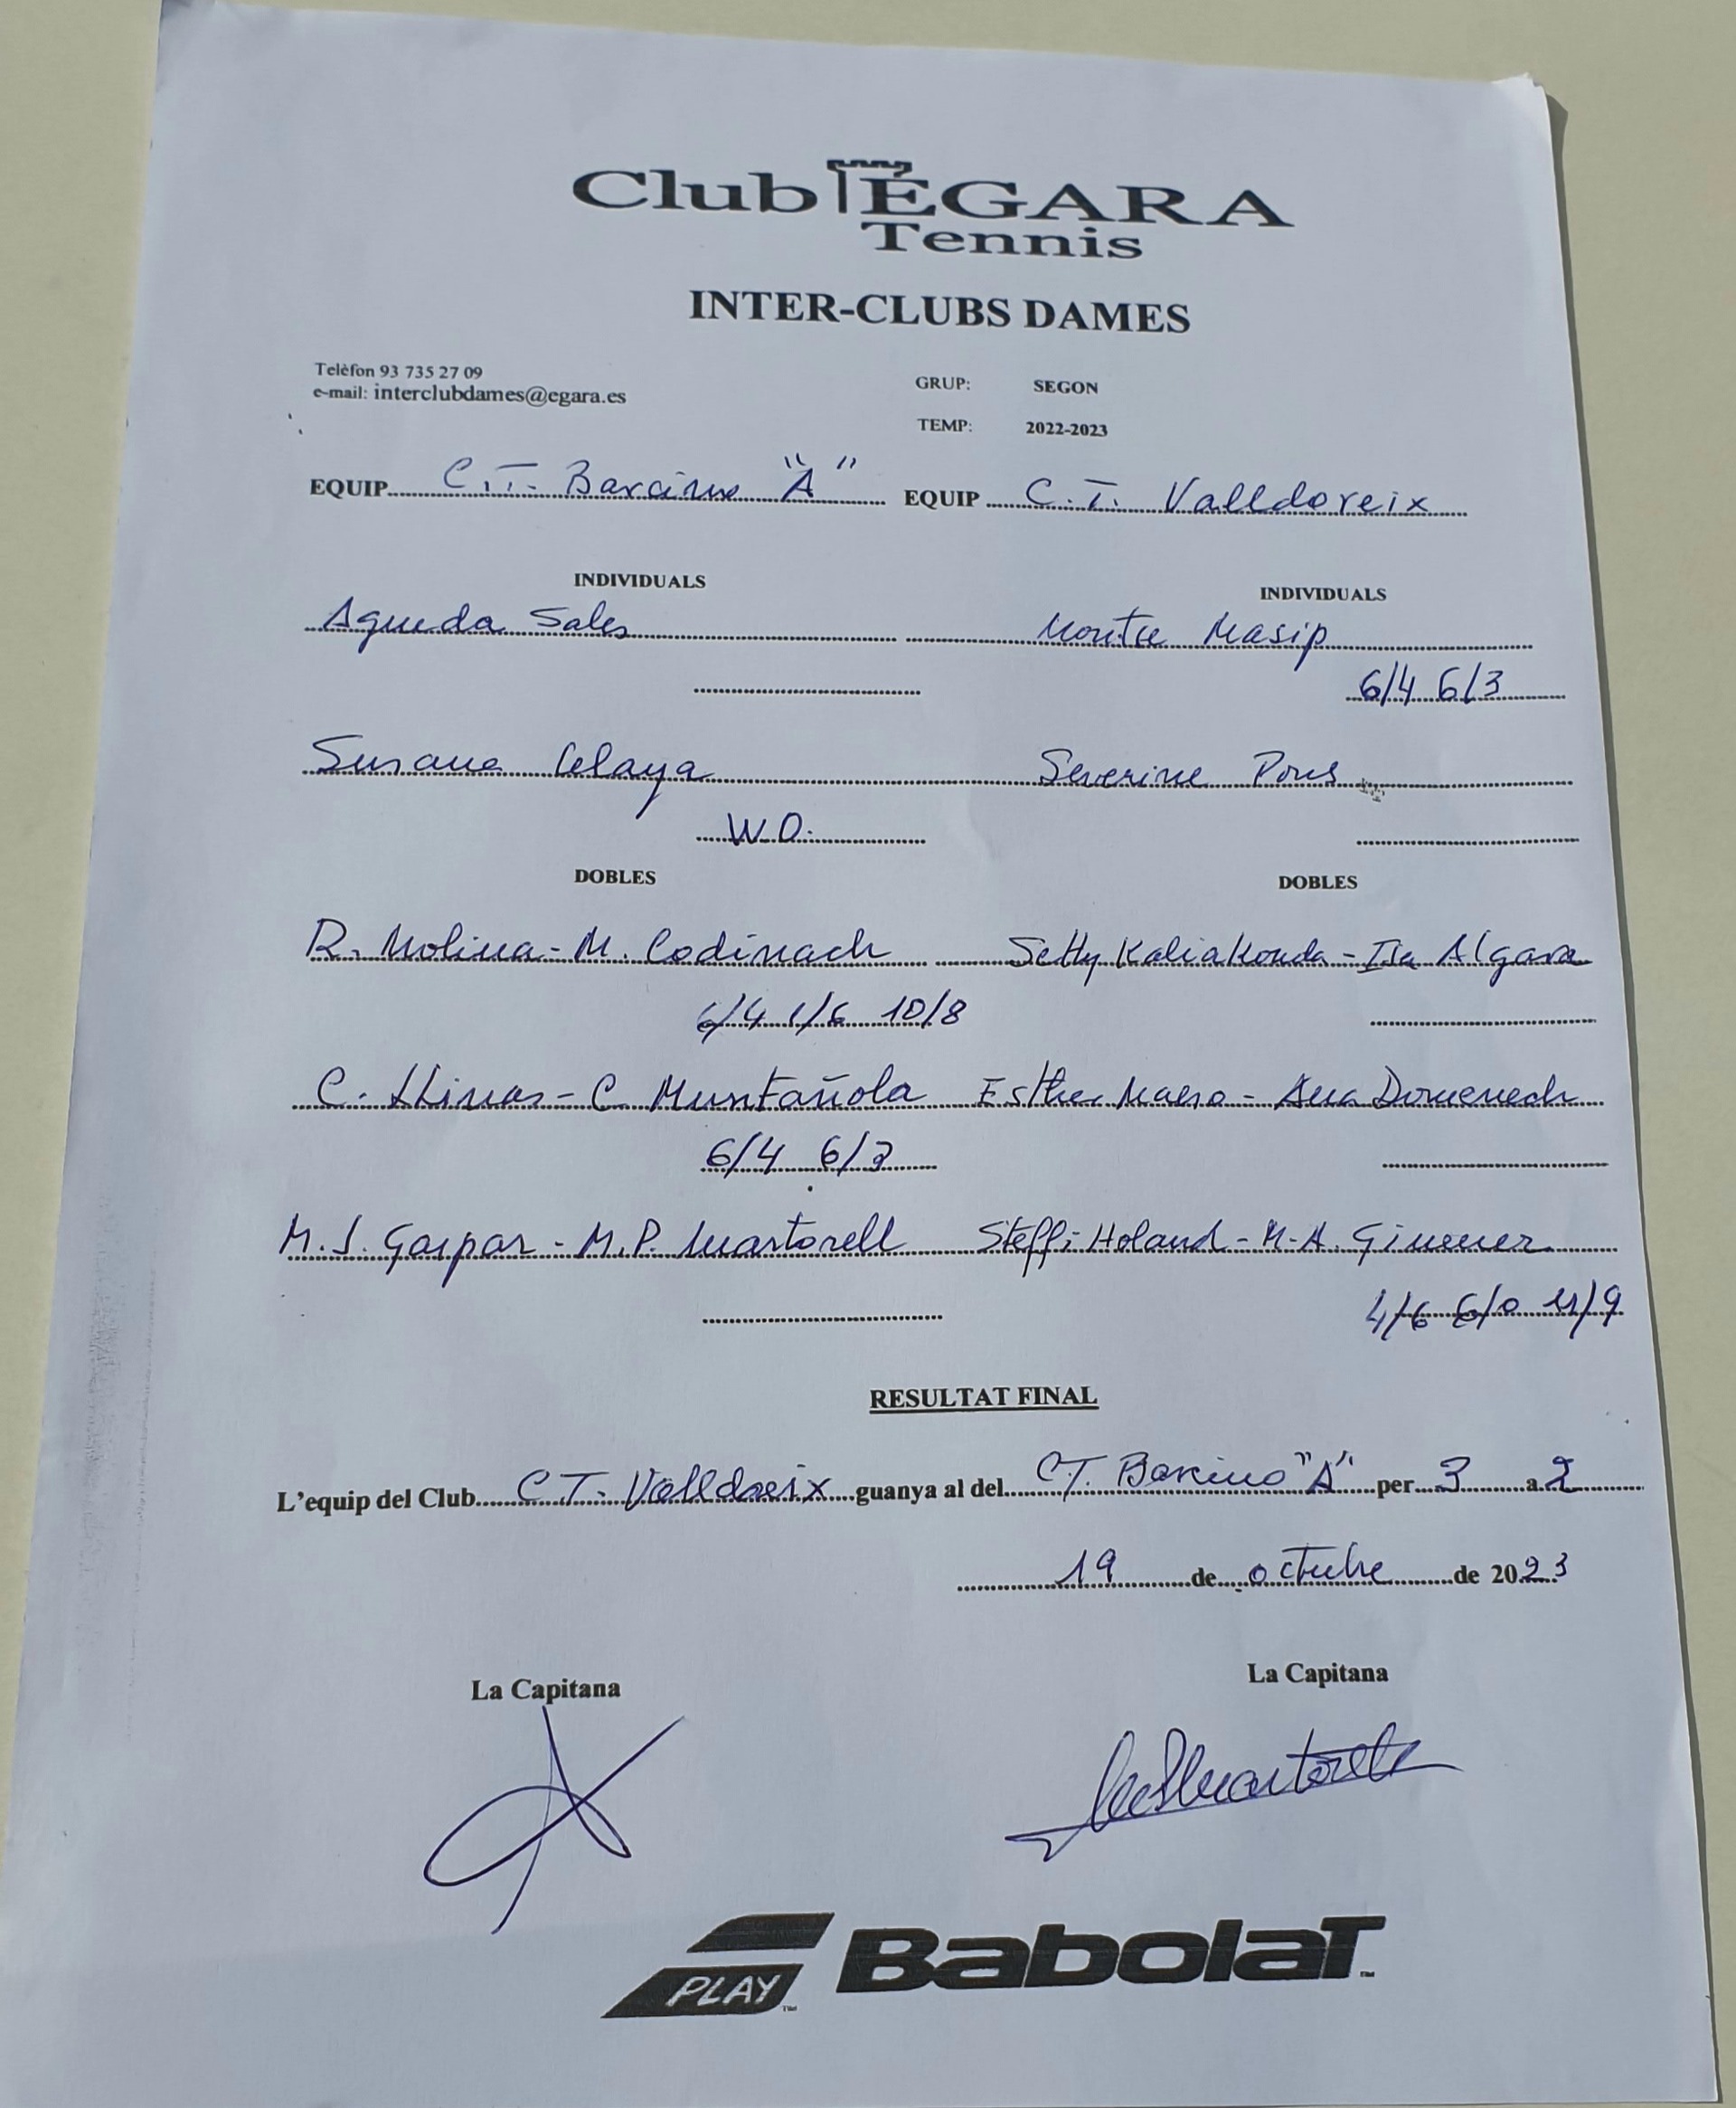 Club ÈGARA
Tennis
INTER-CLUBS DAMES
Telèfon 93 735 27 09
e-mail: interclubdames@egara.es
GRUP: SEGON
TEMP: 2022-2023
EQUIP C.T. Barcino "A" EQUIP C.T. Valldoreix
INDIVIDUALS INDIVIDUALS
Agueda Sales Montse Masip
6/4 6/3
Susana Celaya Severine Pons
W.O.
DOBLES DOBLES
R. Molina - M. Codinach Setty Kaliakonda - Isa Algara
6/4 1/6 10/8
C. Llinas - C Muntañola Esther - Ana Domenech
6/4 6/3
M.J. Gaspar - M.P. Martorell Steffi Holand - M.A. Gimenez
4/6 6/0 11/9
RESULTAT FINAL
L'equip del Club C T. Valldoreix guanya al del CT. Barcino "A" per 3 a 2
19 de octubre de 2023
La Capitana La Capitana
PLAY Babolat